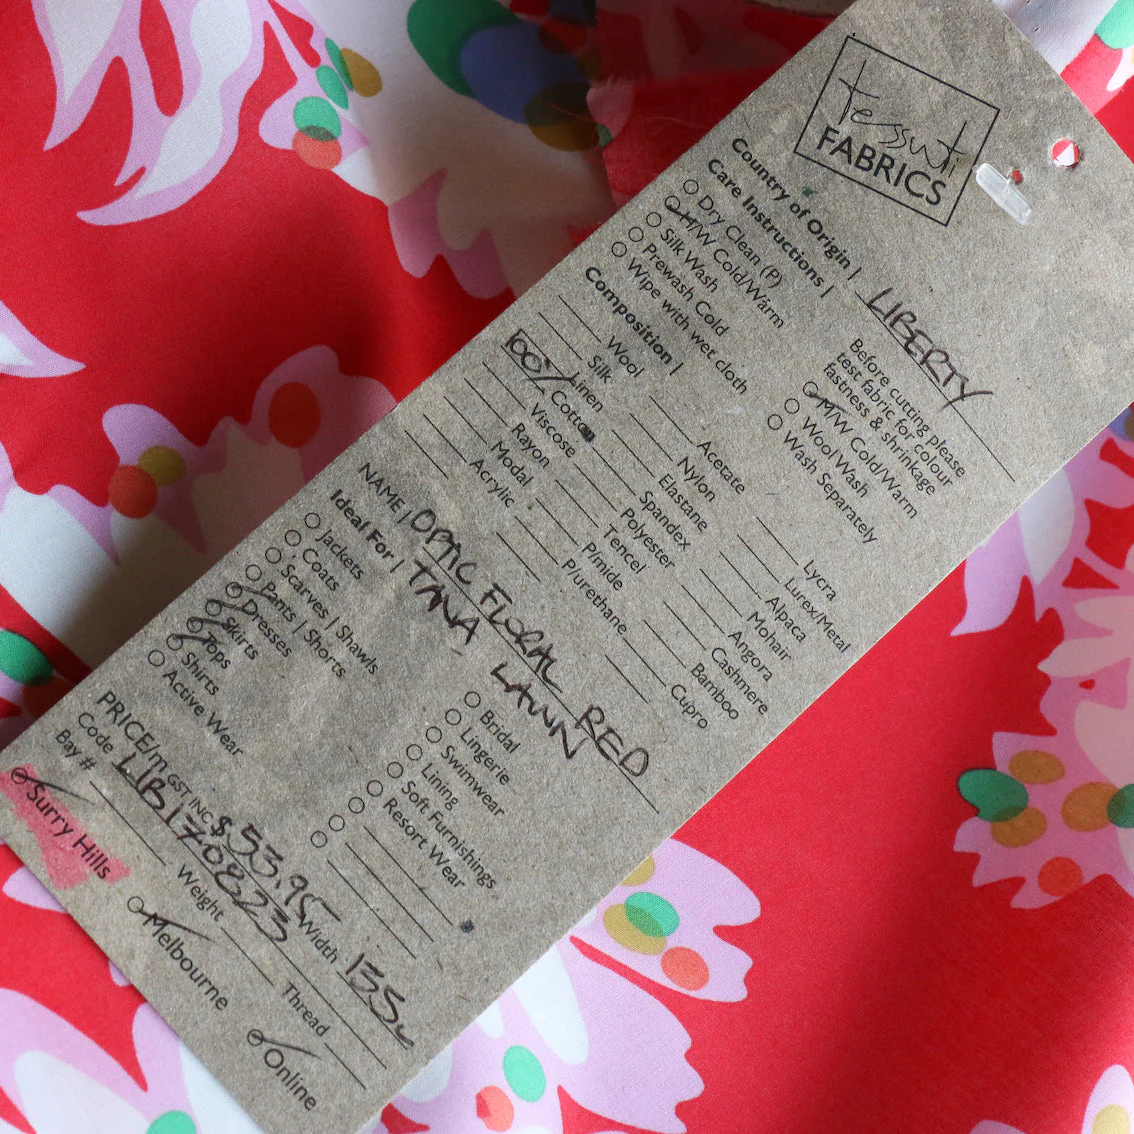 tessuti
FABRICS
Country of Origin | LIBERTY
Care Instructions |
Dry Clean (P)
H/W Cold/Warm
Silk Wash
Prewash Cold
Wipe with wet cloth
Before cutting please
test fabric for colour
fastness & shrinkage
M/W Cold/Warm
Wool Wash
Wash Separately
Composition |
Wool
Silk
Linen
100% Cotton
Viscose
Rayon
Modal
Acrylic
Acetate
Nylon
Elastane
Spandex
Polyester
Tencel
P/mide
P/urethane
Lycra
Lurex/Metal
Alpaca
Mohair
Angora
Cashmere
Bamboo
Cupro
NAME | OPTIC FLORAL RED
TANA LAWN
Ideal For |
Jackets
Coats
Scarves | Shawls
Pants | Shorts
Dresses
Skirts
Tops
Shirts
Active Wear
Bridal
Lingerie
Swimwear
Lining
Soft Furnishings
Resort Wear
PRICE/m GST INC $53.95 Width 135
Code LIB170823
Bay # Weight Thread
Surry Hills
Melbourne
Online